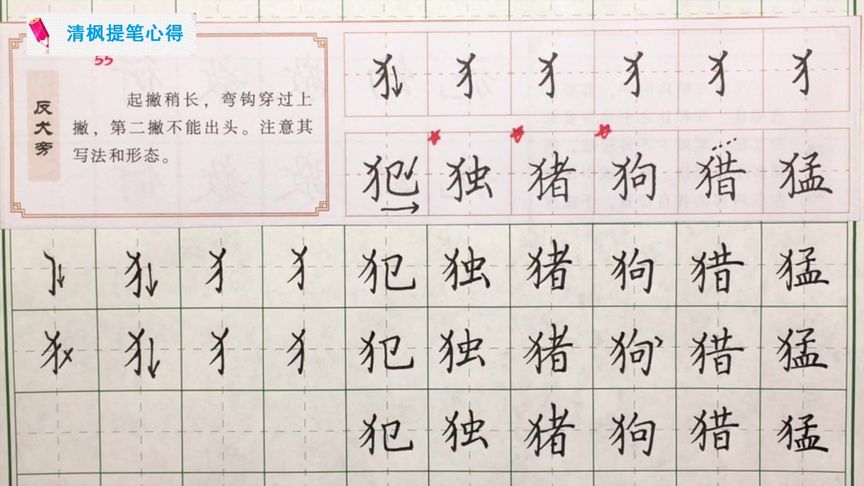 清枫提笔心得
55
反犬旁
起撇稍长，弯钩穿过上
撇，第二撇不能出头。注意其
写法和形态。
犭 犭 犭 犭 犭 犭
犯 独 猪 狗 猎 猛
犭 犭 犭 犯 独 猪 狗 猎 猛
犭 犭 犭 犭 犯 独 猪 狗 猎 猛
犯 独 猪 狗 猎 猛